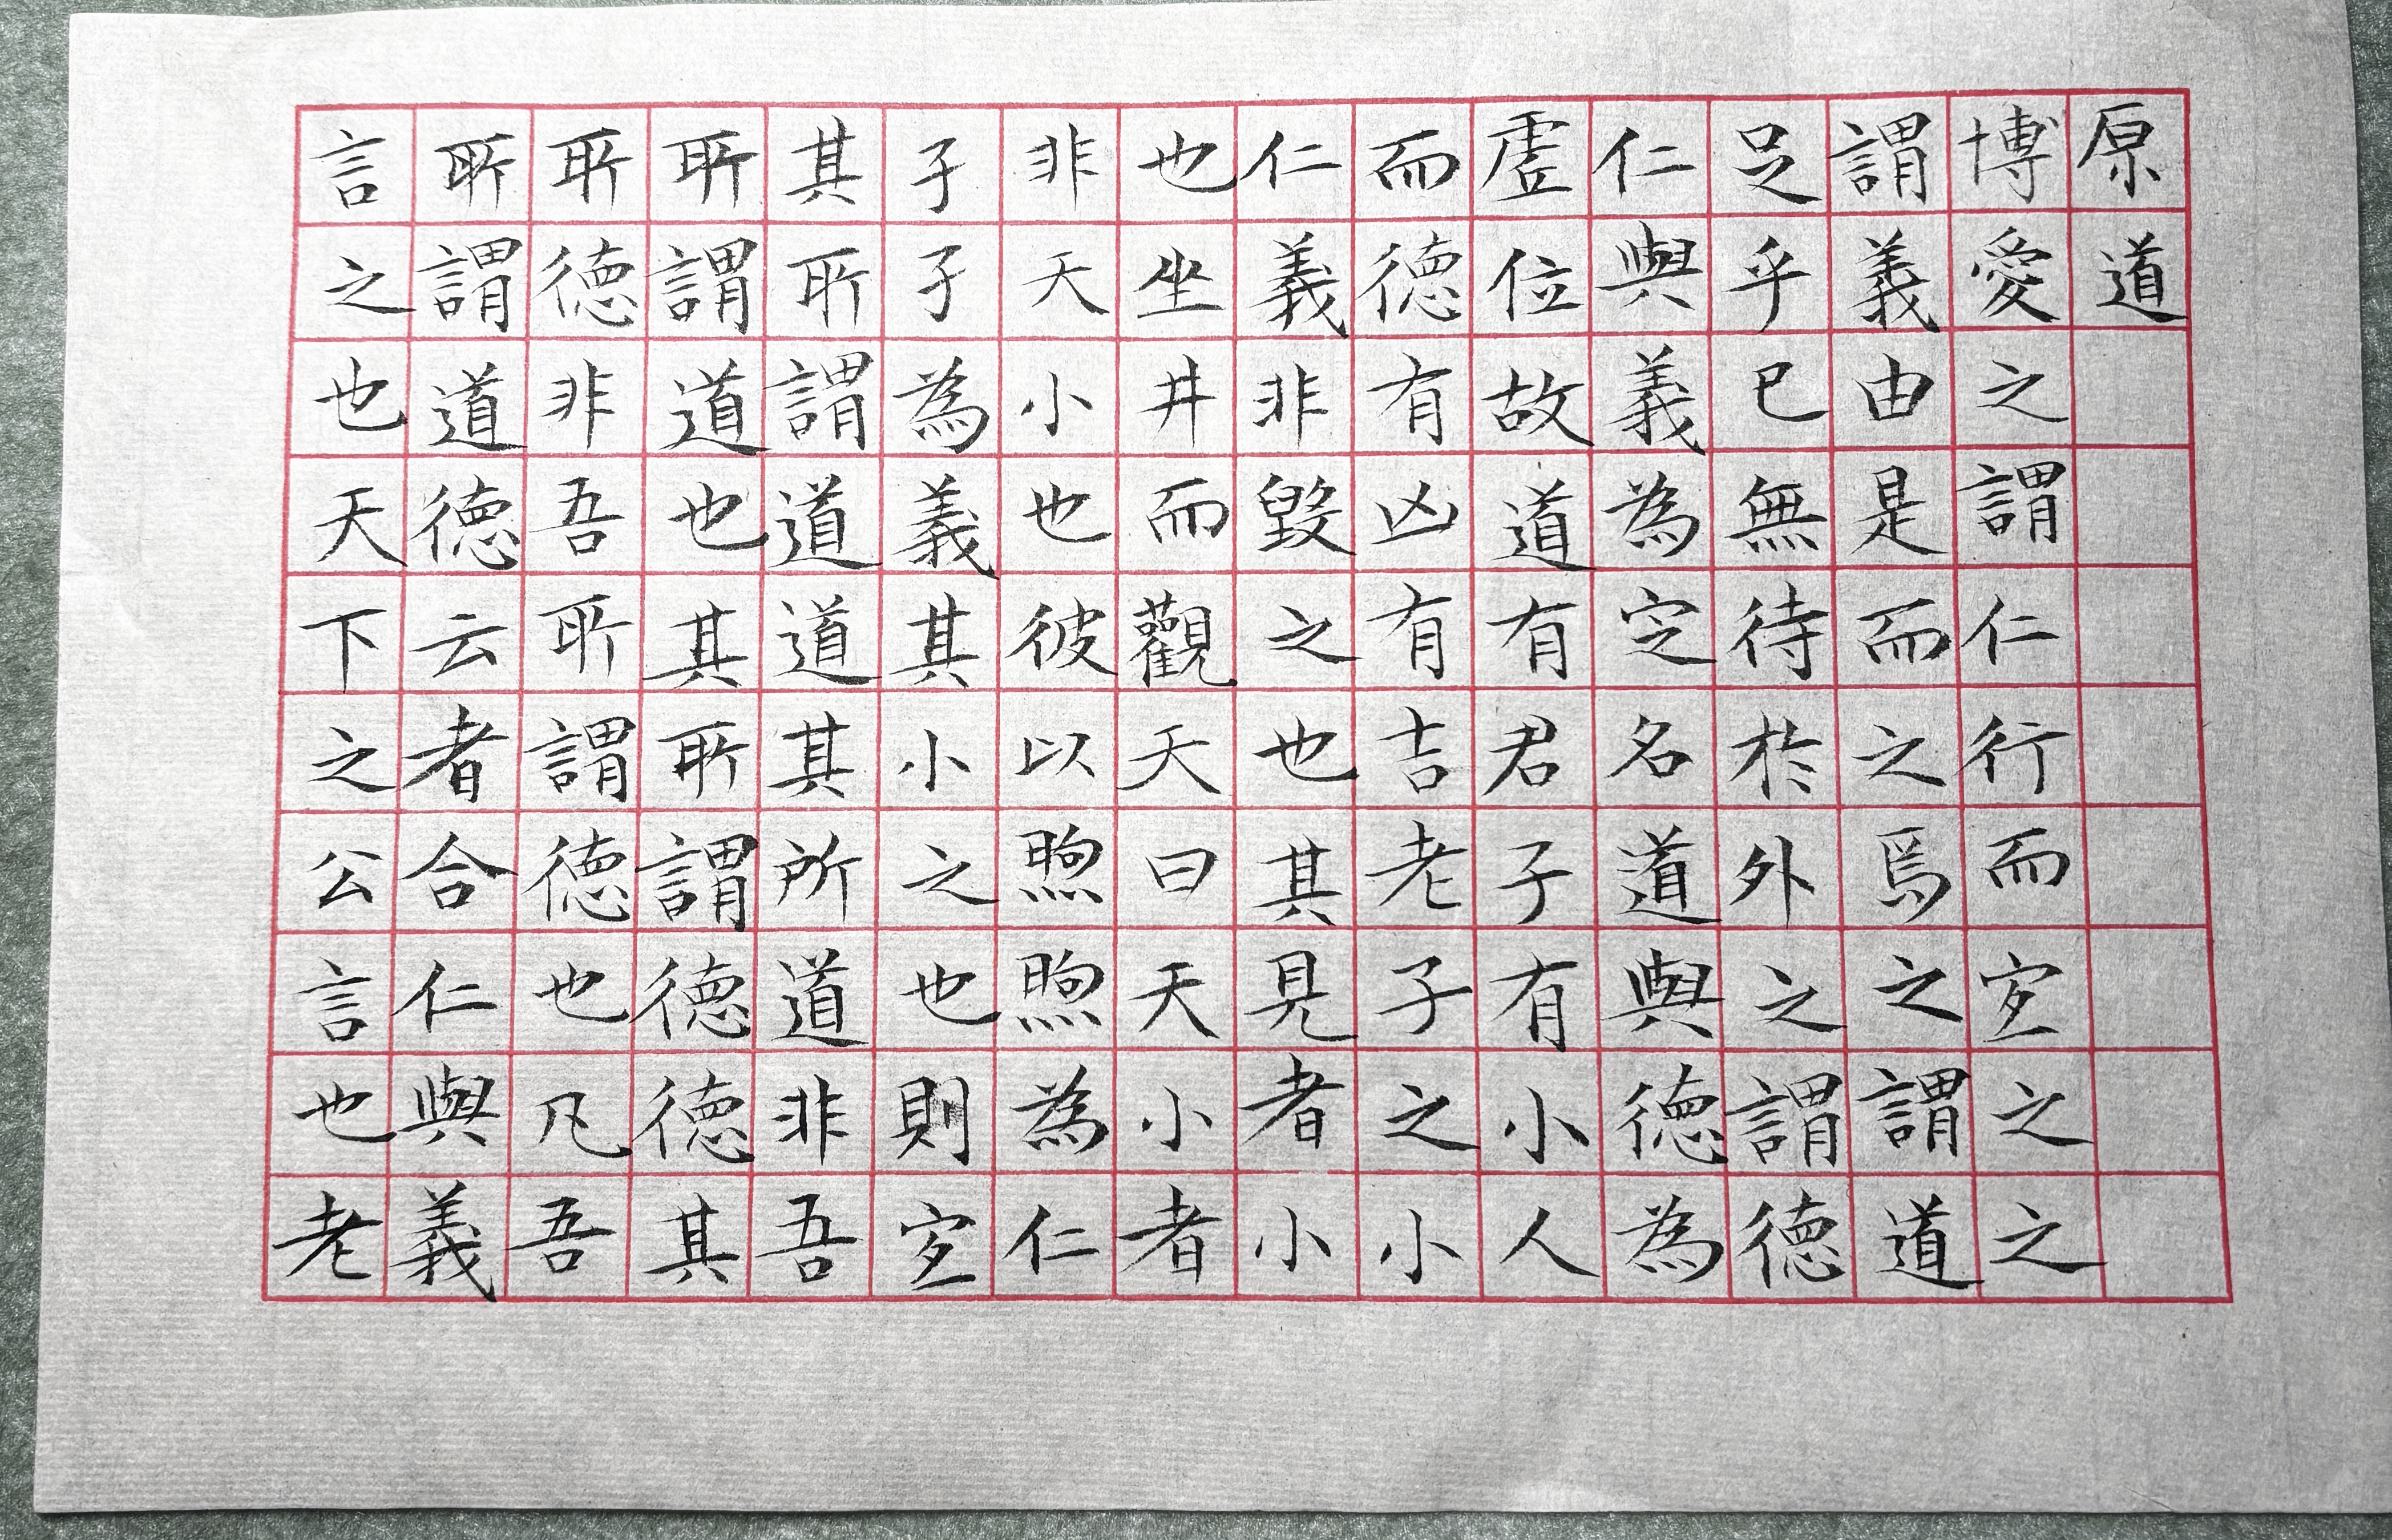 原道
博愛之謂仁行而宜之之
謂義由是而之焉之謂道
足乎已無待於外之謂德
仁與義為定名道與德為
虛位故道有君子有小人
而德有凶有吉老子之小
仁義非毀之也其見者小
也坐井而觀天曰天小者
非天小也彼以煦煦為仁
孑孑為義其小之也則宜
其所謂道道其所道非吾
所謂道也其所謂德德其
所德非吾所謂德也凡吾
所謂道德云者合仁與義
言之也天下之公言也老